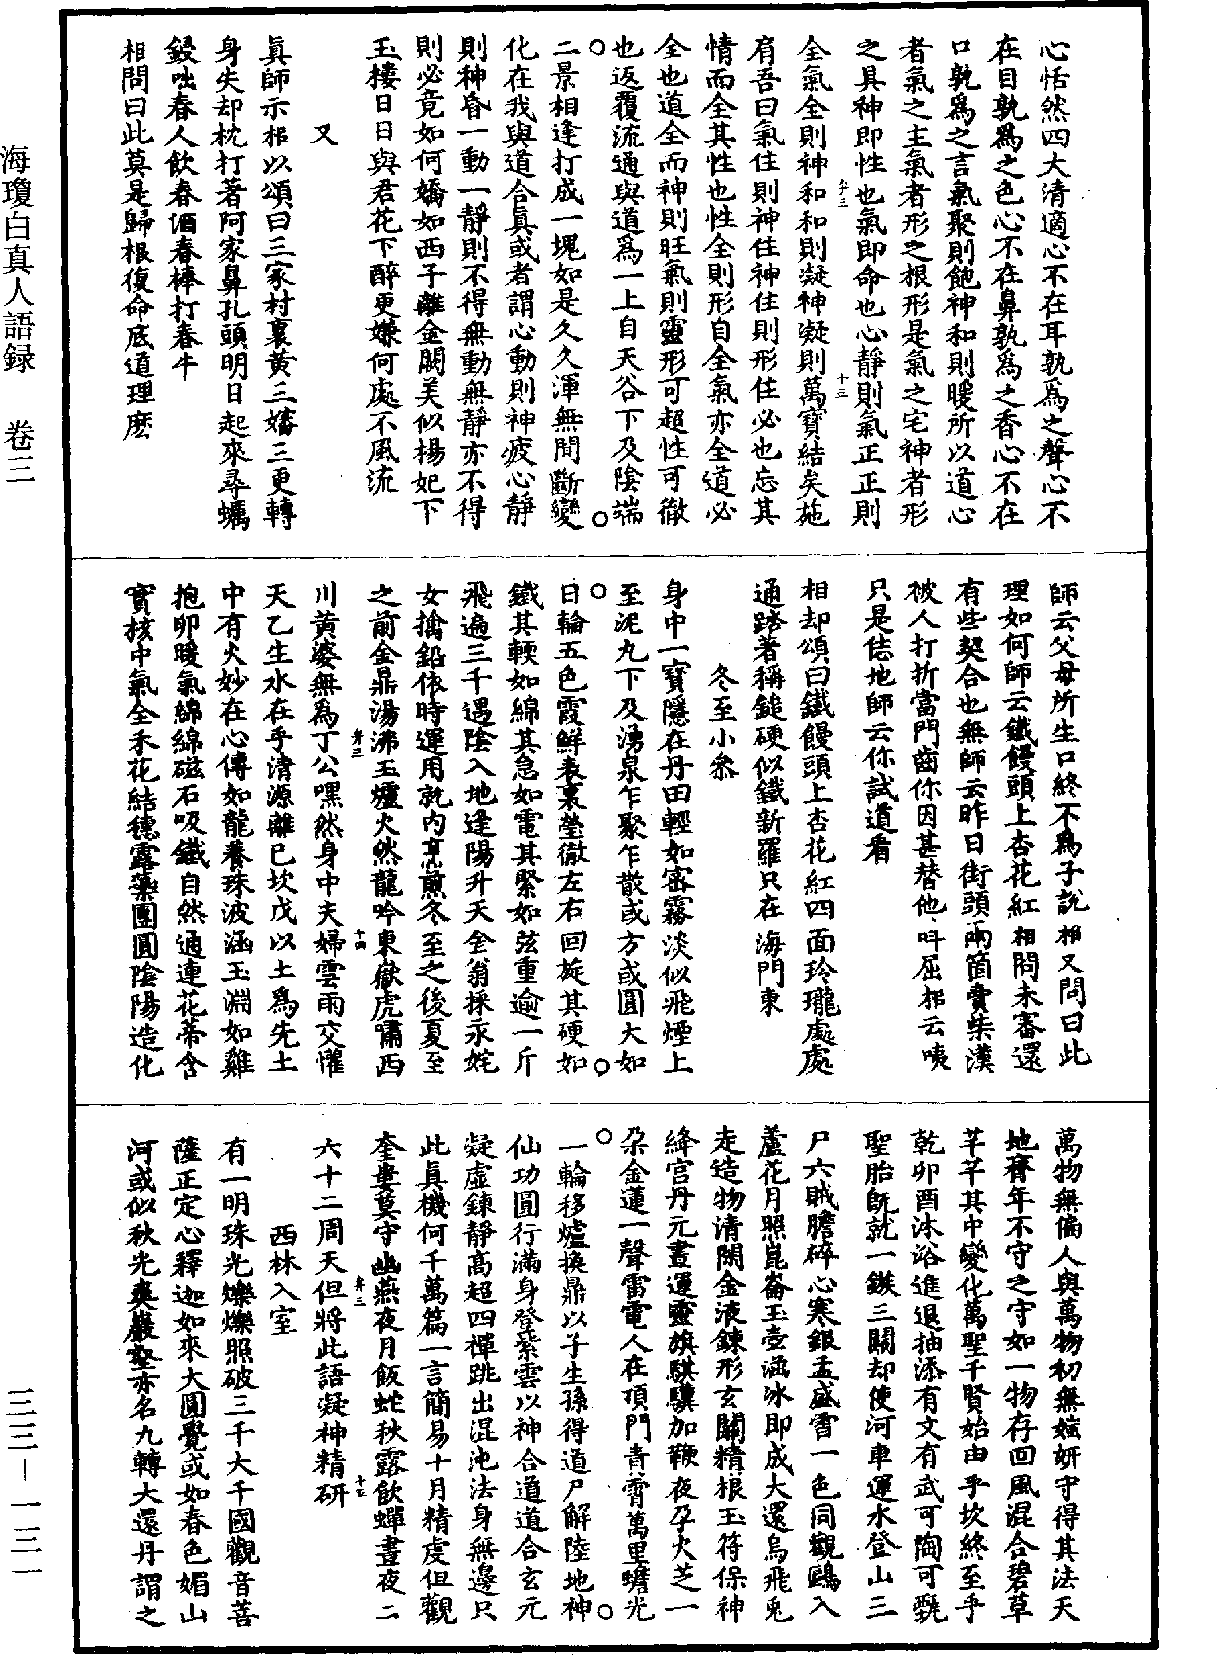 海瓊白真人語録　卷三
三三－一三一
心恬然四大清適心不在耳孰爲之聲心不
在目孰爲之色心不在鼻孰爲之香心不在
口孰爲之言氣聚則飽神和則暖所以道心
者氣之主氣者形之根形是氣之宅神者形
之具神即性也氣即命也心靜則氣正正則
全氣全則神和和則凝神凝則萬寶結矣施
有吾曰氣住則神住神住則形住必也忘其
情而全其性也性全則形自全氣亦全道必
全也道全而神則旺氣則靈形可超性可徹
也返覆流通與道爲一上自天谷下及陰端
二景相逢打成一塊如是久久渾無間斷變
化在我與道合真或者謂心動則神疲心靜
則神昏一動一靜則不得無動無靜亦不得
則必竟如何嬌如西子離金闕美似楊妃下
玉樓日日與君花下醉更嫌何處不風流
又
真師示相以頌曰三家村裏黄三嬸三更轉
身失却枕打著阿家鼻孔頭明日起來尋蠣
鈠咄春人飲春酒春棒打春牛
相問曰此莫是歸根復命底道理麽
師云父母所生口終不爲子說相又問曰此
理如何師云鐵饅頭上杏花紅相問未審還
有些契合也無師云昨日街頭兩箇賣柴漢
被人打折當門齒你因甚替他呌屈相云咦
只是恁地師云你試道看
相却頌曰鐵饅頭上杏花紅四面玲瓏處處
通踏著稱鎚硬似鐵新羅只在海門東
冬至小參
身中一寶隱在丹田輕如密霧淡似飛煙上
至泥丸下及湧泉乍聚乍散或方或圓大如
日輪五色霞鮮表裏瑩徹左右回旋其硬如
鐵其輭如綿其急如電其緊如弦重逾一斤
飛遍三千遇陰入地逢陽升天金翁採汞姹
女擒鉛依時運用就内烹煎冬至之後夏至
之前金鼎湯沸玉爐火然龍吟東嶽虎嘯西
川黄婆無爲丁公嘿然身中夫婦雲雨交懽
天乙生水在乎清源離巳坎戊以土爲先土
中有火妙在心傳如龍養珠波涵玉淵如雞
抱卵暖氣綿綿磁石吸鐵自然通連花蒂含
實核中氣全禾花結穗露蘂團圓陰陽造化
萬物無偏人與萬物初無媸妍守得其法天
地齊年不守之守如一物存回風混合碧草
芊芊其中變化萬聖千賢始由乎坎終至乎
乾卯酉沐浴進退抽添有文有武可陶可甄
聖胎旣就一鏃三關却使河車運水登山三
尸六賊膽碎心寒銀盂盛雪一色同觀鷗入
蘆花月照崑崙玉壺涵冰即成大還烏飛兎
走造物清閑金液鍊形玄關精根玉符保神
絳宫丹元晝運靈旗騏驥加鞭夜孕火芝一
朶金蓮一聲雷電人在頂門青霄萬里蟾光
一輪移爐換鼎以子生孫得道尸解陸地神
仙功圓行滿身登紫雲以神合道道合玄元
凝虛鍊靜高超四禪跳出混沌法身無邊只
此真機何千萬篇一言簡易十月精虔但觀
奎婁莫守幽燕夜月飯蛇秋露飲蟬晝夜二
六十二周天但將此語凝神精研
西林入室
有一明珠光爍爍照破三千大千國觀音菩
薩正定心釋迦如來大圓覺或如春色媚山
河或似秋光爽巖壑亦名九轉大還丹謂之